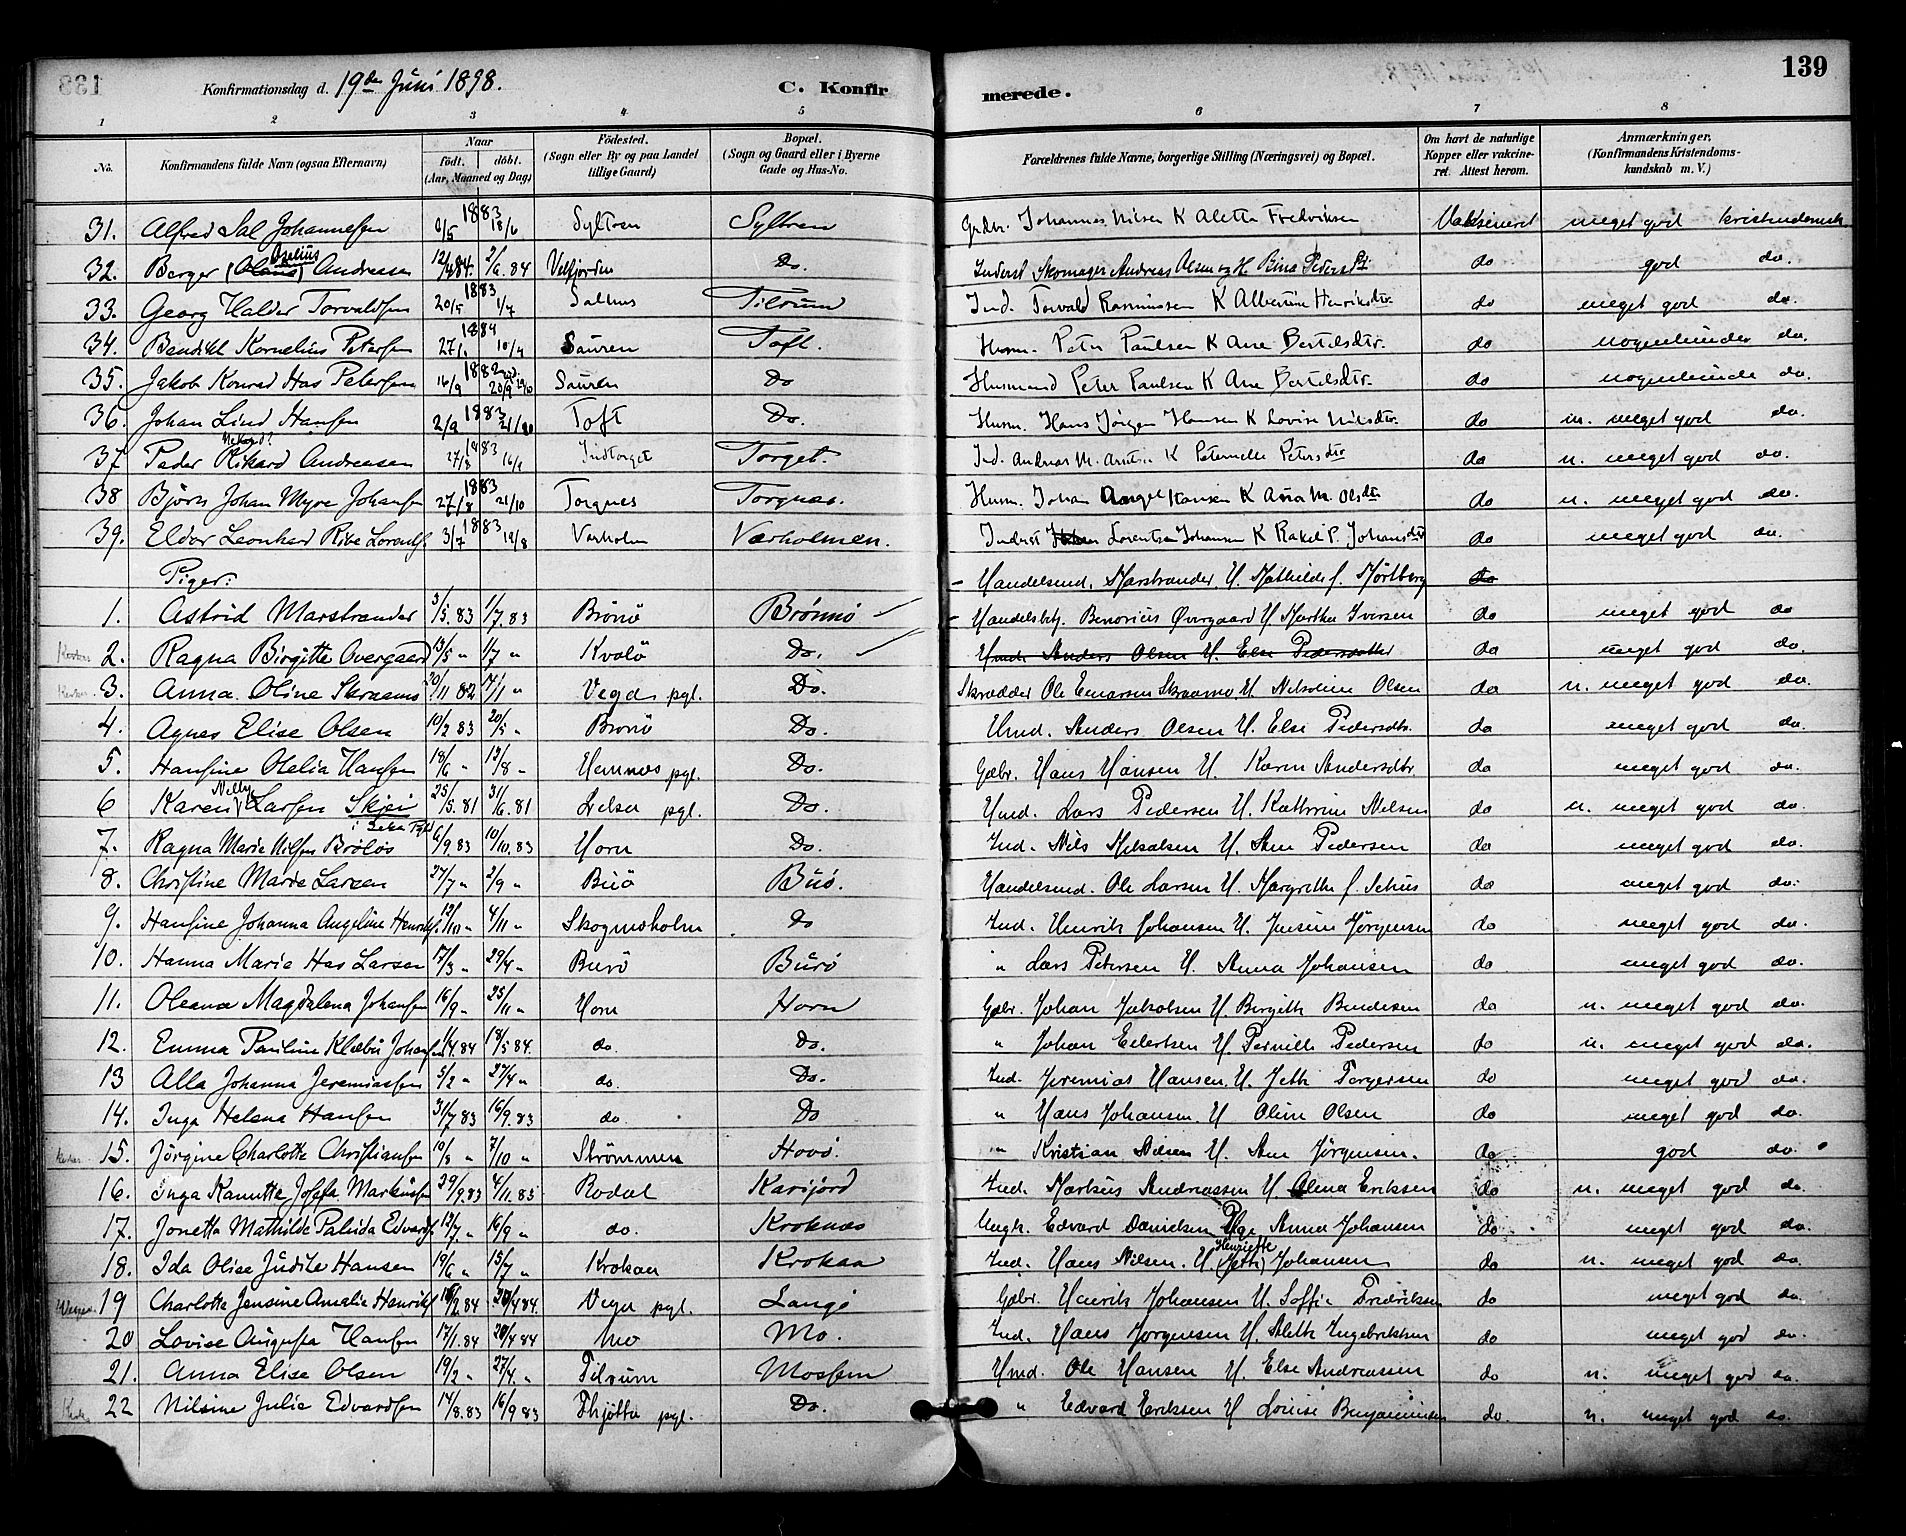 138
Konfirmationsdag d. 19de Juni 1898. C. Konfirmerede. 139
1 2 3 4 5 6 7 8
No. Konfirmandens fulde Navn (ogsaa Efternavn) Naar født. døbt. (Aar, Maaned og Dag) Födested. (Sogn eller By og paa Landet tillige Gaard) Bopæl. (Sogn og Gaard eller i Byerne Gade og Hus-No. Forældrenes fulde Navne, borgerlige Stilling (Næringsvei) og Bopæl. Om havt de naturlige Kopper eller vakcineret. Attest herom. Anmærkninger, (Konfirmandens Kristendomskundskab m. V.)
31. Alfred Johannesen 1883 18/6 Syltren Syltren Johannes Nilsen K Aletta Fredriksen Vaksineret meget god kristendomsk
32. Berger (Olaus) Ozelius Andreasen 12/4 84. 2/6. 84 Velfjorden Do. Inderst Skomager Andreas Olsen og H. Rina Peders do god do.
33. Georg Haldor Torvaldsen 1883 20/5 1/7 Salhus Tilrum Ind. Torvald Rasmussen K Albertine Henriksdtr. do meget god do.
34. Bendikt Kornelius Petersen 1884 27/1 10/4 Sauren Toft. Husm. Peter Paulsen K Ane Bertelsdtr. do nogenlunde do.
35. Jakob Konrad Has Petersen 1882 16/9 Sauren Do Husmand Peter Paulsen K Ane Bertelsdtr. do nogenlunde do.
36. Johan Lind Hansen 1883 2/9 21/10 Toft Do. Husm. Hans Jørgen Hansen K Lovise Nilsdtr. do n. meget god do.
37 Peder Rikard Andreasen 1883 27/8 Indtorget Torget. Ind. Andreas M. K Peternelle Petersdtr do n. meget god do.
38 Björn Johan Myre Johansen 1883 27/8 21/10 Torgnes Torgnes. Husm. Johan Angel Hansen K Ana M. Olsdtr do n. meget god do.
39. Eldor Leonhard Ribe Lorentsf. 1883 3/7 19/8 Varholm Værholmen. Inderst Lorentsen Johansen K Rakel P. Johansdtr do meget god do.
Piger: - Handelsmd. Marstrander H. Mathilde f. Mørtberg do
1. Astrid Marstrander 3/5. 83 1/7. 83 Brönö Brönnö - Handelsbetj. Benoricus Overgaard H Martha Iversen do meget god do
2. Ragna Birgitte Overgaard 13/5 " 1/7 " Kvalö Do. Hmd. Anders Olsen H. Else Pedersdatter do meget god do.
3. Anna Oline Skraamo 20/11 82 14/1 " Vega pgl. Do. Skrædder Ole Enarsen Skraamo H. Nikoline Olsen do n. meget god do.
4. Agnes Elise Olsen 10/2 83 20/5 " Brönö Do. Hmd. Anders Olsen H. Else Pedersdtr. do meget god do.
5. Hansine Olelia Hansen 18/6 " 12/8 " Hemnæs pgl. Do. Gbr. Hans Hansen H. Karen Andersdtr do meget god do.
6 Karen Nelly Larsen Skjei 25/5. 81 31/6. 81 Leka pgl. Do. Hmd. Lars Pedersen H. Kathrine Nilsen do n. meget god do.
7. Ragna Marie Nilsen Bröløs 6/9 83 10/10. 83 Horn Do. Ind. Nils Mikalsen H. Ane Pedersen do meget god do.
8. Christine Marie Larsen 27/7 " 2/9 " Burö Burö. Handelsmd. Ole Larsen H. Margrethe f. Schus do meget god do.
9. Hansine Johanna Angeline Henriks. 12/10 " 4/11 " Skogmoholm Do Ind. Henrik Johansen H. Jensine Jørgensen do meget god do.
10. Hanna Marie Has Larsen 17/3 " 29/4 " Burö Burö " Lars Petersen H. Anna Johansen do meget god do.
11. Oleana Magdalena Johansen 16/9 " 25/11 " Horn Horn Gbr. Johan Jakobsen H. Birgitte Bendiksen do n. meget god do.
12. Emma Pauline Klæbu Johansen 1/4. 84 18/5 84. do Do. " Johan Eilertsen H. Pernille Pedersen do n. meget god do.
13 Alla Johanna Jeremiassen 5/2 " 27/4 " do. Do. Ind. Jeremias Hansen. H. Jetta Torgersen do meget god do.
14. Inga Helena Hansen 31/7 83 16/9. 83 do. Do " Hans Johansen. H Oline Olsen do meget god do.
15. Jörgine Charlotte Christiansen 19/8 " 7/10 " Strömmen Hovö. " Kristian Nilsen H. Ane Jørgensen. do god do.
16. Inga Kanutta Josefa Markussen 29/9. 83 4/11. 83 Rodal Karijord Ind. Markus Andreassen H Olina Eriksen do n. meget god do.
17. Jonetta Mathilde Palida Edvards. 12/7. " 16/9 " do. Kroknæs Ungk. Edvard Danielsen Pige Anna Johansen do meget god do.
18. Ida Olise Judite Hansen 19/6 " 15/7 " Krokaa Krokaa Ind. Hans Nilsen. H. (Jetta) Henriette Johansen do n. meget god do.
19 Charlotte Jensine Amalie Henriks. 16/2. 84 20/4 84. Vega pgl. Langö Gbr. Henrik Johansen H. Soffie Fredriksen do meget god do.
20 Lovise Augusta Hansen 17/1. 84 20/4 84 Mo Mo. Ind. Hans Jørgensen H. Aletta Ingebriktsen do meget god do.
21. Anna Elise Olsen 19/2 " 27/4. " Tilrum Mossem Hmd. Ole Hansen H. Else Andreassen do n. meget god do.
22 Nilsine Julie Edvardsen 14/8. 83 16/9 83 Thjötta pgl. Do. " Edvard Eriksen H Lovise Benjaminsen do. n. meget god do.